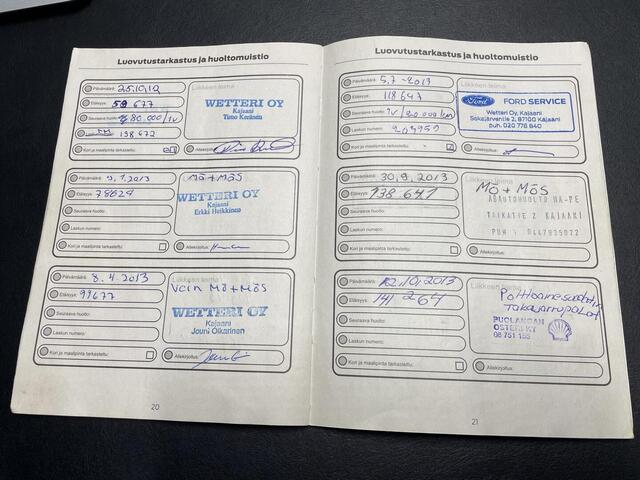 Luovutustarkastus ja huoltomuistio
Päivämäärä: 25.10.12
Liikkeen leima
Etäisyys: 59 677
WETTERI OY
Kajaani
Timo Keränen
Seuraava huolto: 80.000/1v
138 672
Kori ja maalipinta tarkastettu:
Allekirjoitus:
Päivämäärä: 9.1.2013
Liikkeen leima
MÖ+MÖS
Etäisyys: 78624
WETTERI OY
Kajaani
Erkki Heikkinen
Seuraava huolto:
Laskun numero:
Kori ja maalipinta tarkastettu:
Allekirjoitus:
Päivämäärä: 8.4.2013
Liikkeen leima
Vain MÖ+MÖS
Etäisyys: 99677
WETTERI OY
Kajaani
Jouni Oikarinen
Seuraava huolto:
Laskun numero:
Kori ja maalipinta tarkastettu:
Allekirjoitus:
20
Luovutustarkastus ja huoltomuistio
Päivämäärä: 5.7-2013
Liikkeen leima
Etäisyys: 118647
Ford FORD SERVICE
Wetteri Oy, Kajaani
Sokajärventie 2, 87100 Kajaani
puh. 020 778 840
Seuraava huolto: 1v/20.000km
Laskun numero: 209959
Kori ja maalipinta tarkastettu:
Allekirjoitus:
Päivämäärä: 30.9.2013
Liikkeen leima
MÖ+MÖS
Etäisyys: 138.641
TAIKATIE 2 KAJAANI
Seuraava huolto:
Laskun numero:
Kori ja maalipinta tarkastettu:
Allekirjoitus:
Päivämäärä: 12.10.2013
Liikkeen leima
Etäisyys: 141 264
Polttoainesuodatin
takajarrupalat
PUOLANGAN
08 751 155
Seuraava huolto:
Laskun numero:
Kori ja maalipinta tarkastettu:
Allekirjoitus:
21